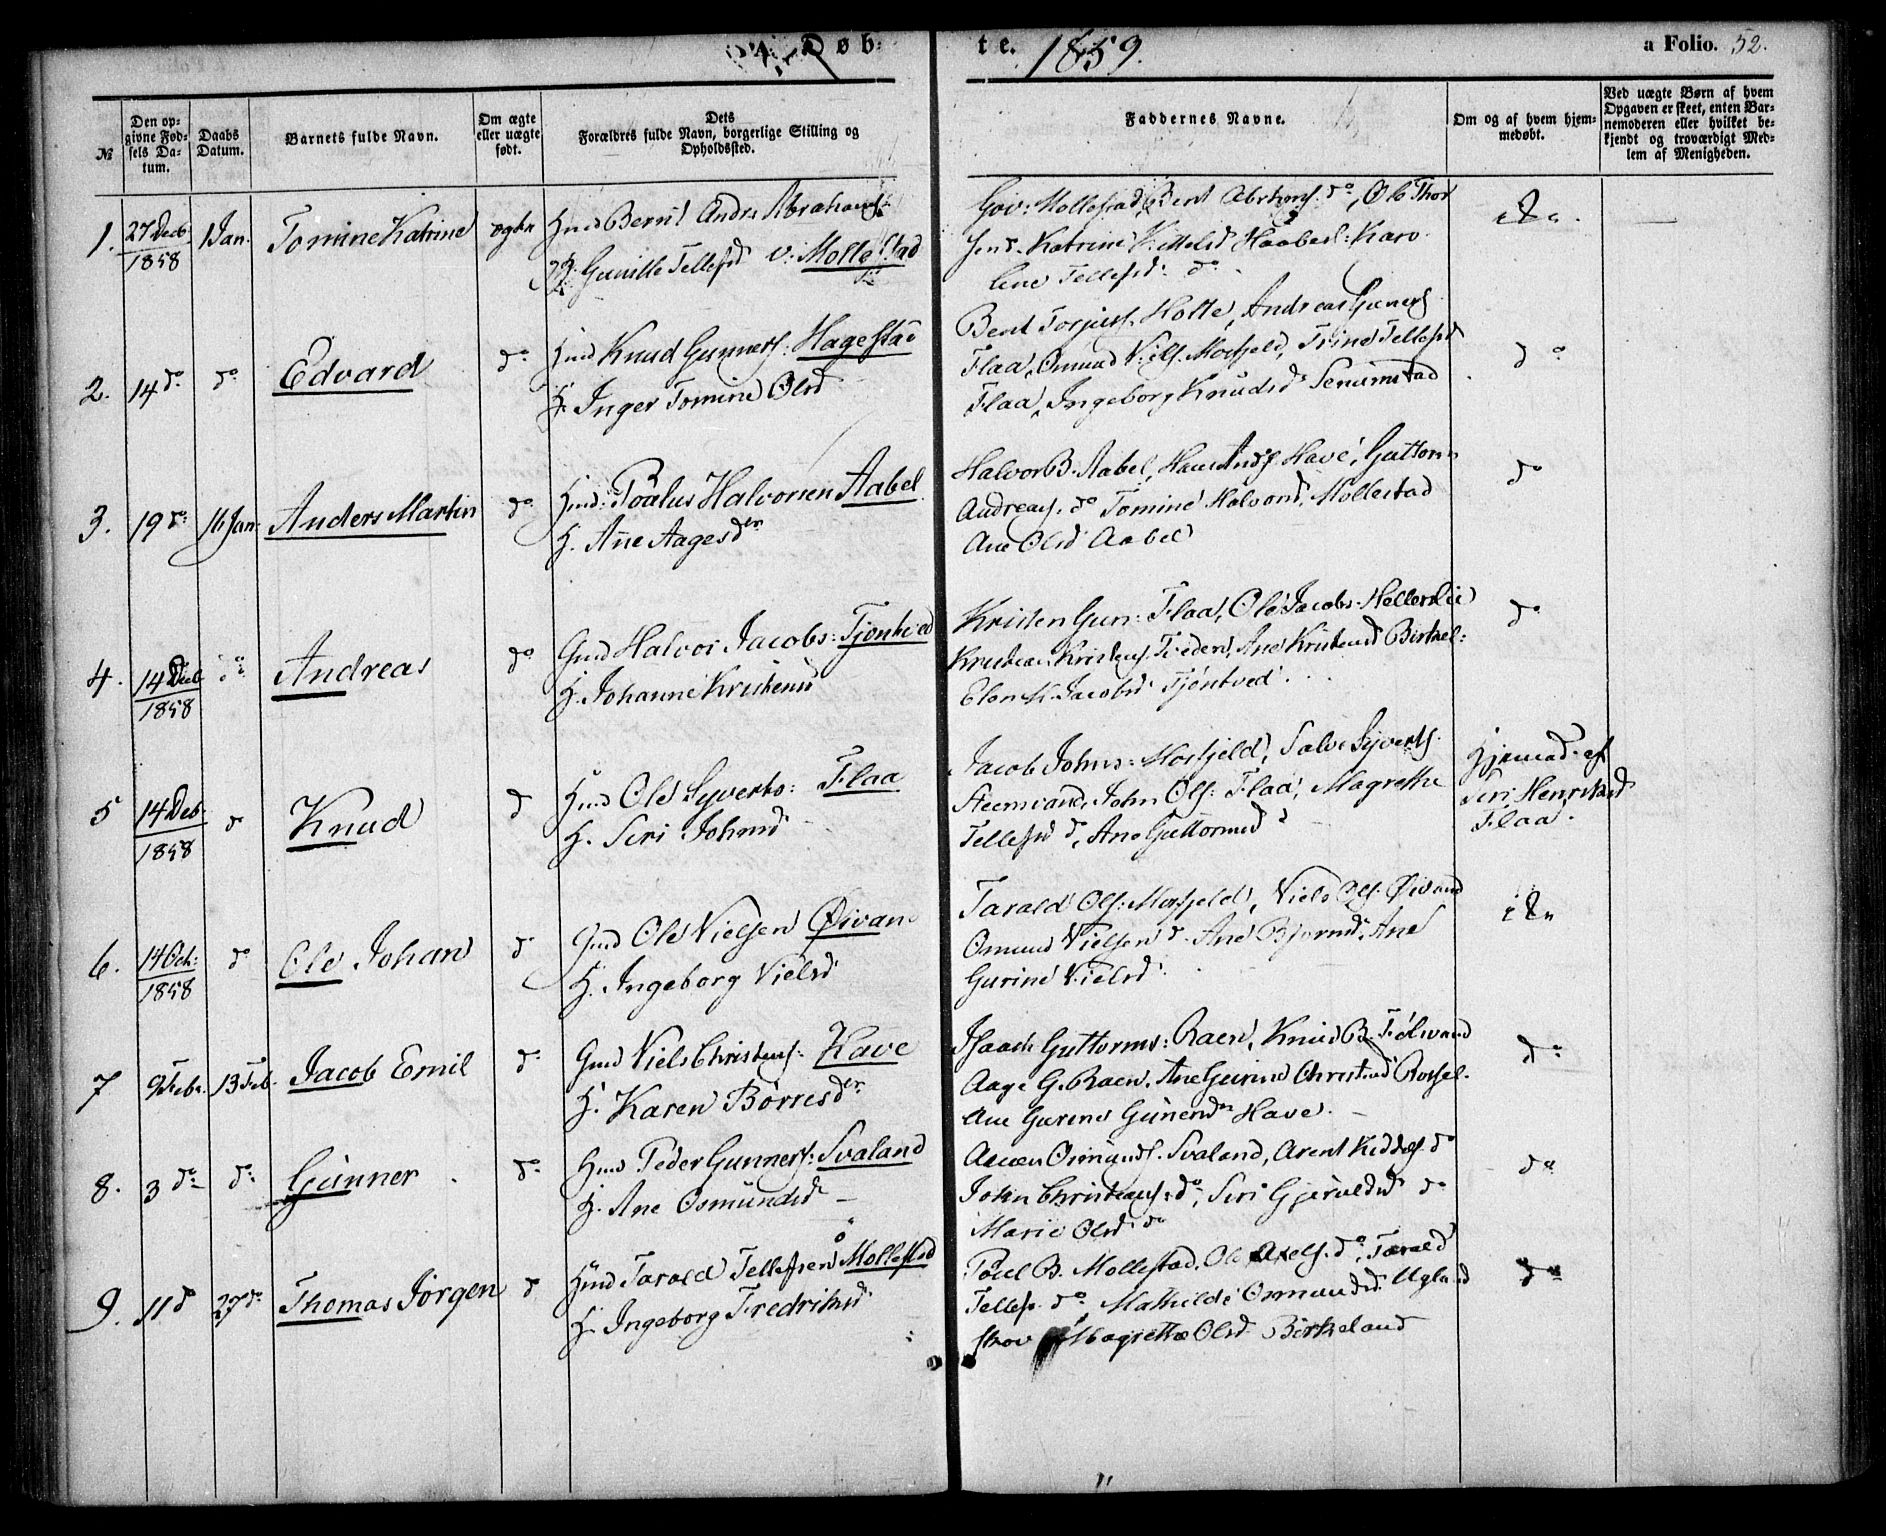 Døb:
te. 1859.
a Folio. 52.
№
Den op-
givne Fød-
sels Da-
tum.
Daabs
Datum.
Barnets fulde Navn.
Om ægte
eller uægte
født.
Dets
Forældres fulde Navn, borgerlige Stilling og
Opholdssted.
Faddernes Navne.
Om og af hvem hjem-
medøbt.
Ved uægte Børn af hvem
Opgaven er skeet, enten Bar-
nemoderen eller hvilket be-
kjendt og troværdigt Med-
lem af Menigheden.
1. 27 Deb 1858 1 Jan. Tomine Katrine ægte
Hmd Bernt Andr. Abrahams:
Gunille Tellefsd v: Mollestad
Gov: Mollestad, Bent Abrhms. do, Ole Thor
Katrine Haabesl: Karo
line Tellefsd: do
2. 14 do do Edvard do
Hmd Knud Gunners: Hagestad
H. Inger Tomine Olsd
Bent Torjusf. Holte, Andreas Guners
Flaa, Omund Nielf. Mosfjeld, Trine Tellefsd
Flaa, Ingeborg Knudsd Senumstad
do
3. 19 do 16 Jan: Anders Martin do
Hmd: Poalus Halvorsen Aabel
H. Ane Aagesder
Halvor B. Aabel, Hans Andsf. Have, Guttorm
Andreasf. do Tomine Halvorsd. Mollestad
Ane Olsd Aabel
do
4. 14 Deb 1858 do Andreas do
Gmd Halvor Jacobs: Tjöntved
H. Johanne Kristensd
Kristen Gun: Flaa, Ole Jacobs: Hellerslie
Kristian Kristens. Tveden, Ane Kristensd Birkel:
Elen K. Jacobsd Tjöntved.
do
5 14 Deb. 1858 d Knud d
Hmd Ole Syverts: Flaa
H. Siri Johnsd
Jacob Johns: Mosfjeld, Salve Syvertf.
Steensvand, John Olf: Flaa, Magrethe
Tellefsd d, Ane Guttormsd d
Hjemmed. af
Siri Henriksd
Flaa.
6. 14 Oct: 1858 d Ole Johan d
Gmd Ole Nielsen Øivan
H. Ingeborg Nielsd
Tarald Olf: Mosfjeld, Niels Olf. Øivand
Omund Nielsen d. Ane Bjornsd, Ane
Gurine Nielsd.
7 9 Febr. 13 Feb. Jacob Emil d:
Gmd Niels Christens: Have
H. Karen Börresder
Isaach Guttorms: Raen, Knud B. Fölvand
Aage G. Raen. Ane Gurine Christensd Rossel.
Ane Gurine Gunersdr Have.
do
8. 3 do d: Gunner do
Hmd Peder Gunners: Svaland
H. Ane Osmundsd
Osmundsf. Svaland, Arent do
John Christensf: do, Siri Gjeruldsd do
Marie Olsd do
do
9. 11 d 27 do Thomas Jörgen d
Hmd Tarald Tellefsen Mollestad
H. Ingeborg Fredriksd
Poul B. Mollestad. Ole Axelf. do, Tarald
Tellefs. do, Mathilde Osmundsd. Ugland
skov Magrethe Olsd Birkeland
do